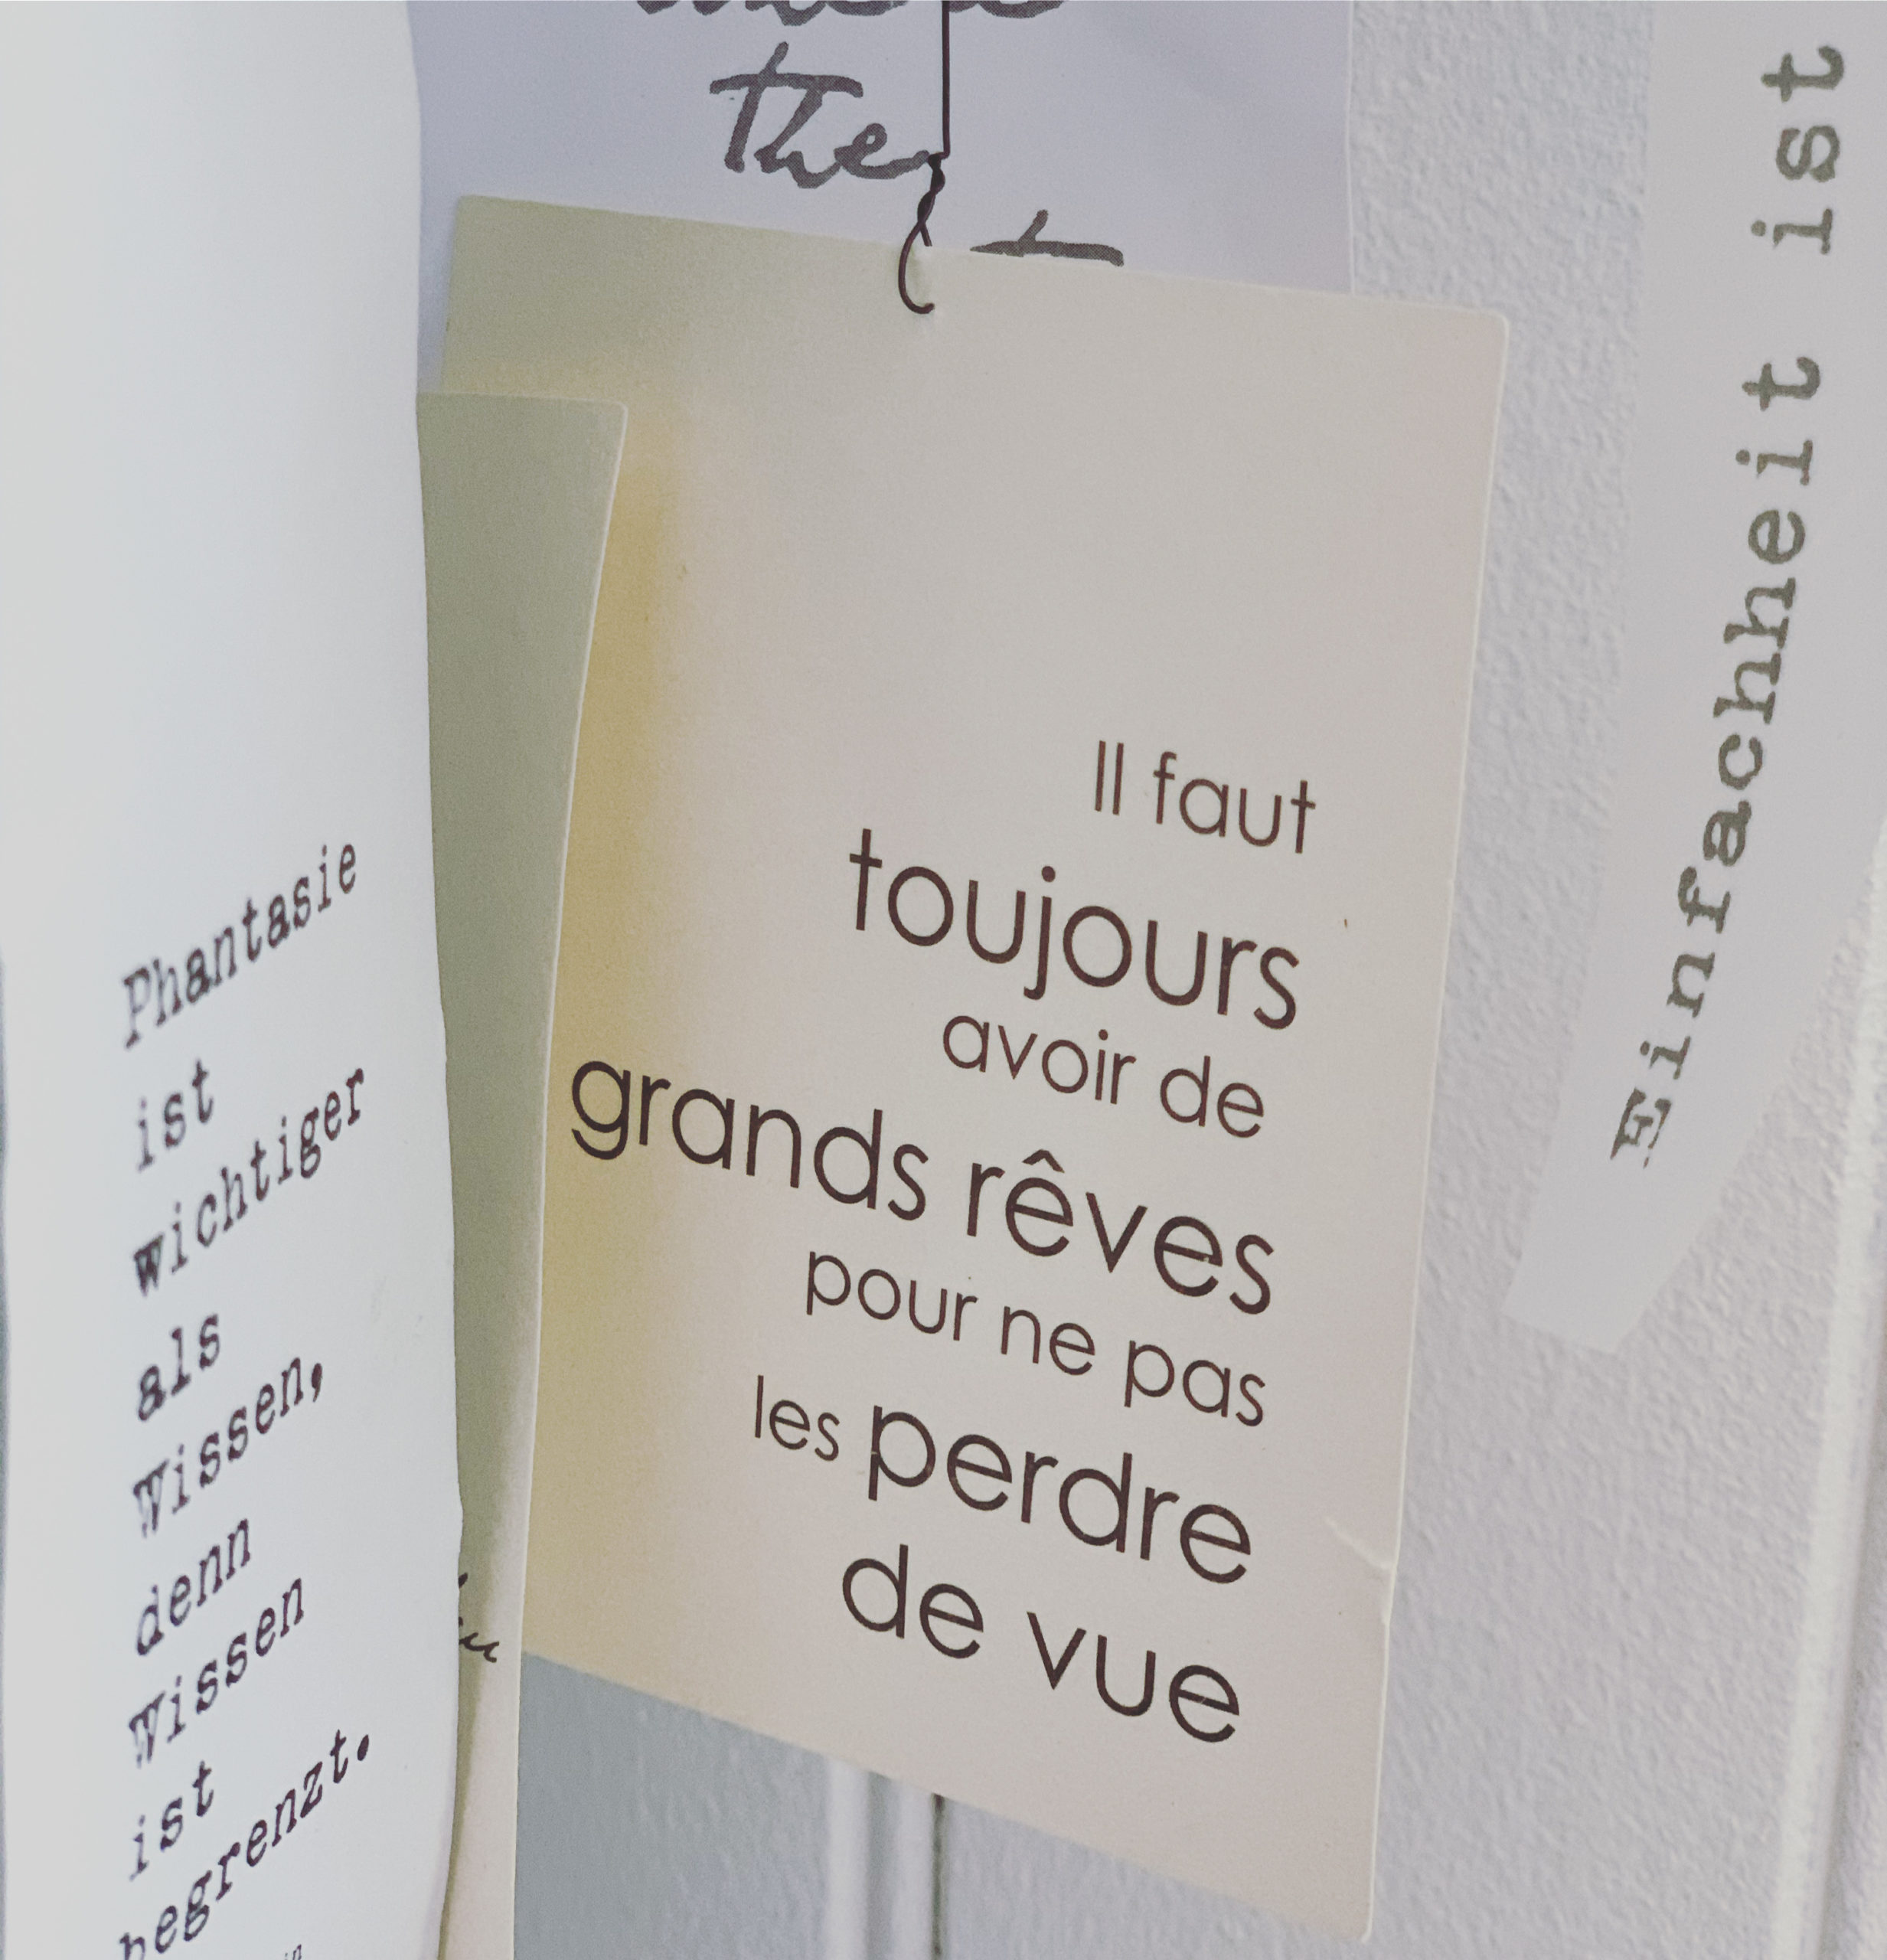 Phantasie
ist
wichtiger
als
Wissen,
denn
Wissen
ist
begrenzt.
The
Il faut
toujours
avoir de
grands rêves
pour ne pas
les perdre
de vue
Einfachheit ist